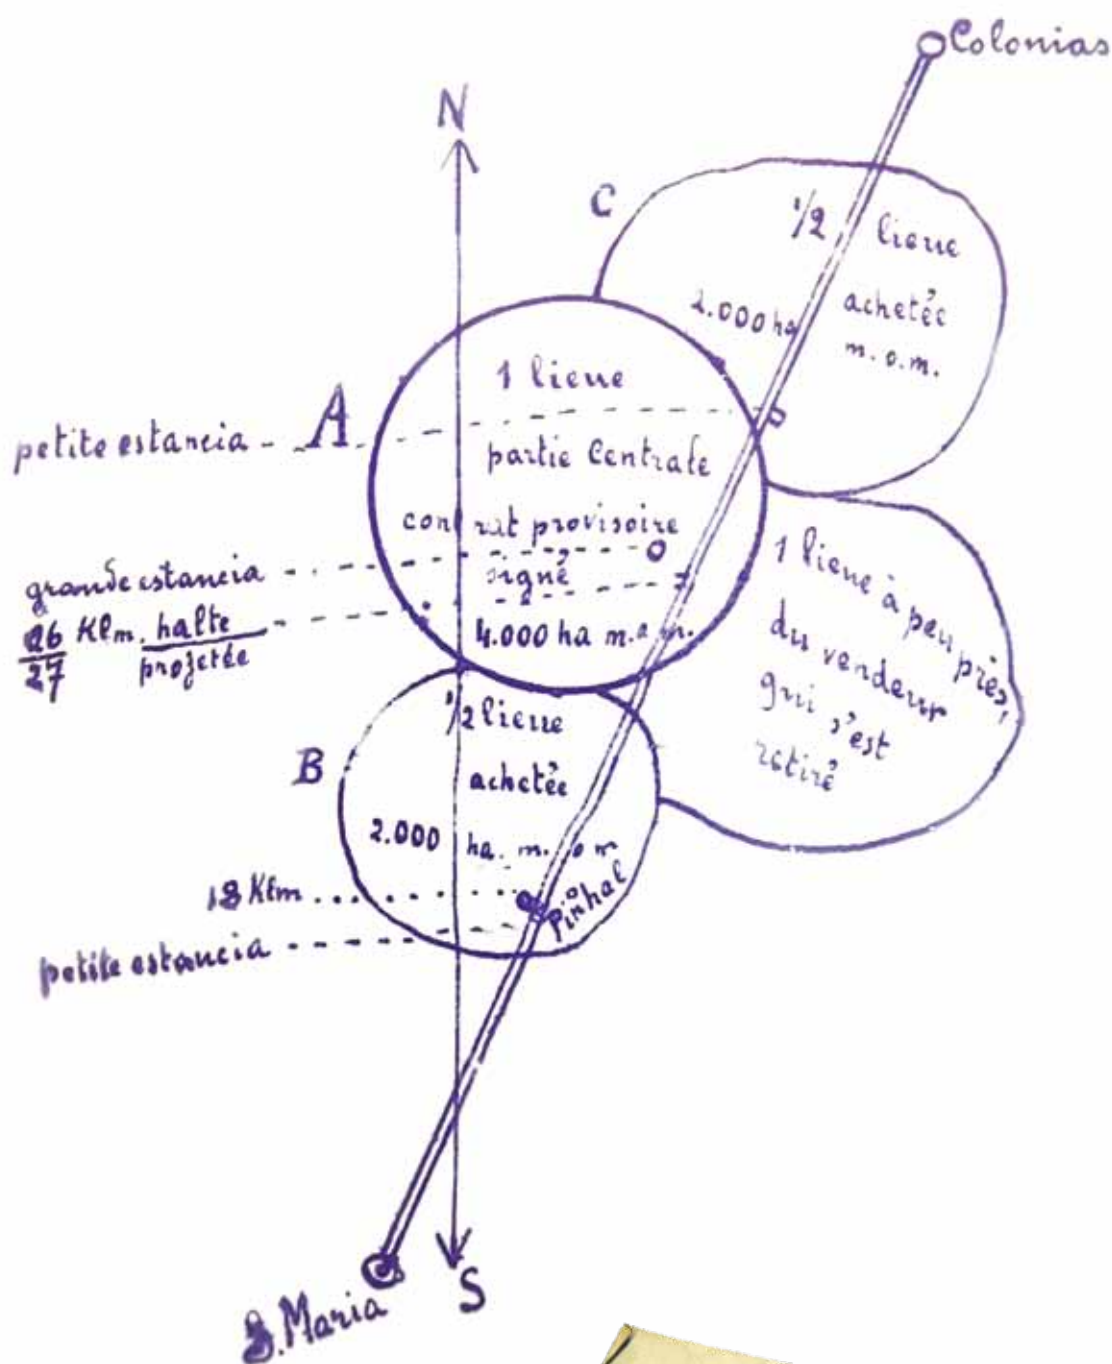 Colonias
N
C
1/2 lieue
achetée
m.o.m.
2.000 ha
A
1 lieue
partie Centrale
contrat provisoire
signé
4.000 ha m.o.m.
petite estancia
grande estancia
26 Klm. halte
27 projetée
1 lieue à peu près,
du vendeur
qui s'est
retiré
B
1/2 lieue
achetée
2.000 ha. m. o m
18 Klm
Pinhal
petite estancia
S. Maria
S